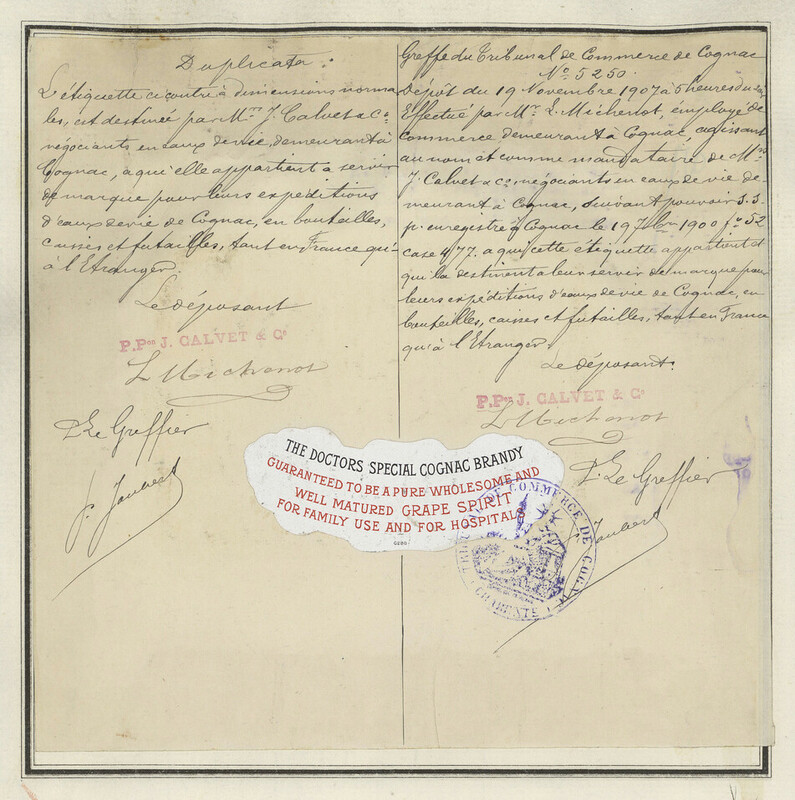 Duplicata :
L'étiquette ci contre à dimensions norma-
les, est destinée par Mrs J. Calvet & Co
négociants en eaux de vie, demeurant à
Cognac, à qui elle appartient à servir
de marque pour leurs expéditions
d'eaux de vie de Cognac, en bouteilles,
caisses et futailles, tant en France qu'-
à l'Etranger.
Le déposant
P.Pon J. CALVET & Co
L Michenot
P. Le Greffier
J. Jaubert
Greffe du Tribunal de Commerce de Cognac
No 5250.
Dépôt du 19 Novembre 1907 à 5 heures du
Effectué par Mr L. Michenot, employé de
commerce demeurant à Cognac, agissant
au nom et comme mandataire de Mrs
J. Calvet & Co, négociants en eaux de vie de-
meurant à Cognac, suivant pouvoir s.s.
p. enregistré à Cognac le 19 7bre 1900 fo 52
case 477. a qui cette étiquette appartient et
qui la destinent à leur servir de marque pour
leurs expéditions d'eaux de vie de Cognac, en
bouteilles, caisses et futailles, tant en France
qu'à l'Etranger.
Le déposant.
P.Pon J. CALVET & Co
L Michenot
P. Le Greffier
Jaubert
THE DOCTORS SPECIAL COGNAC BRANDY
GUARANTEED TO BE A PURE WHOLESOME AND
WELL MATURED GRAPE SPIRIT
FOR FAMILY USE AND FOR HOSPITALS
TRIBUNAL DE COMMERCE DE COGNAC
(CHARENTE)